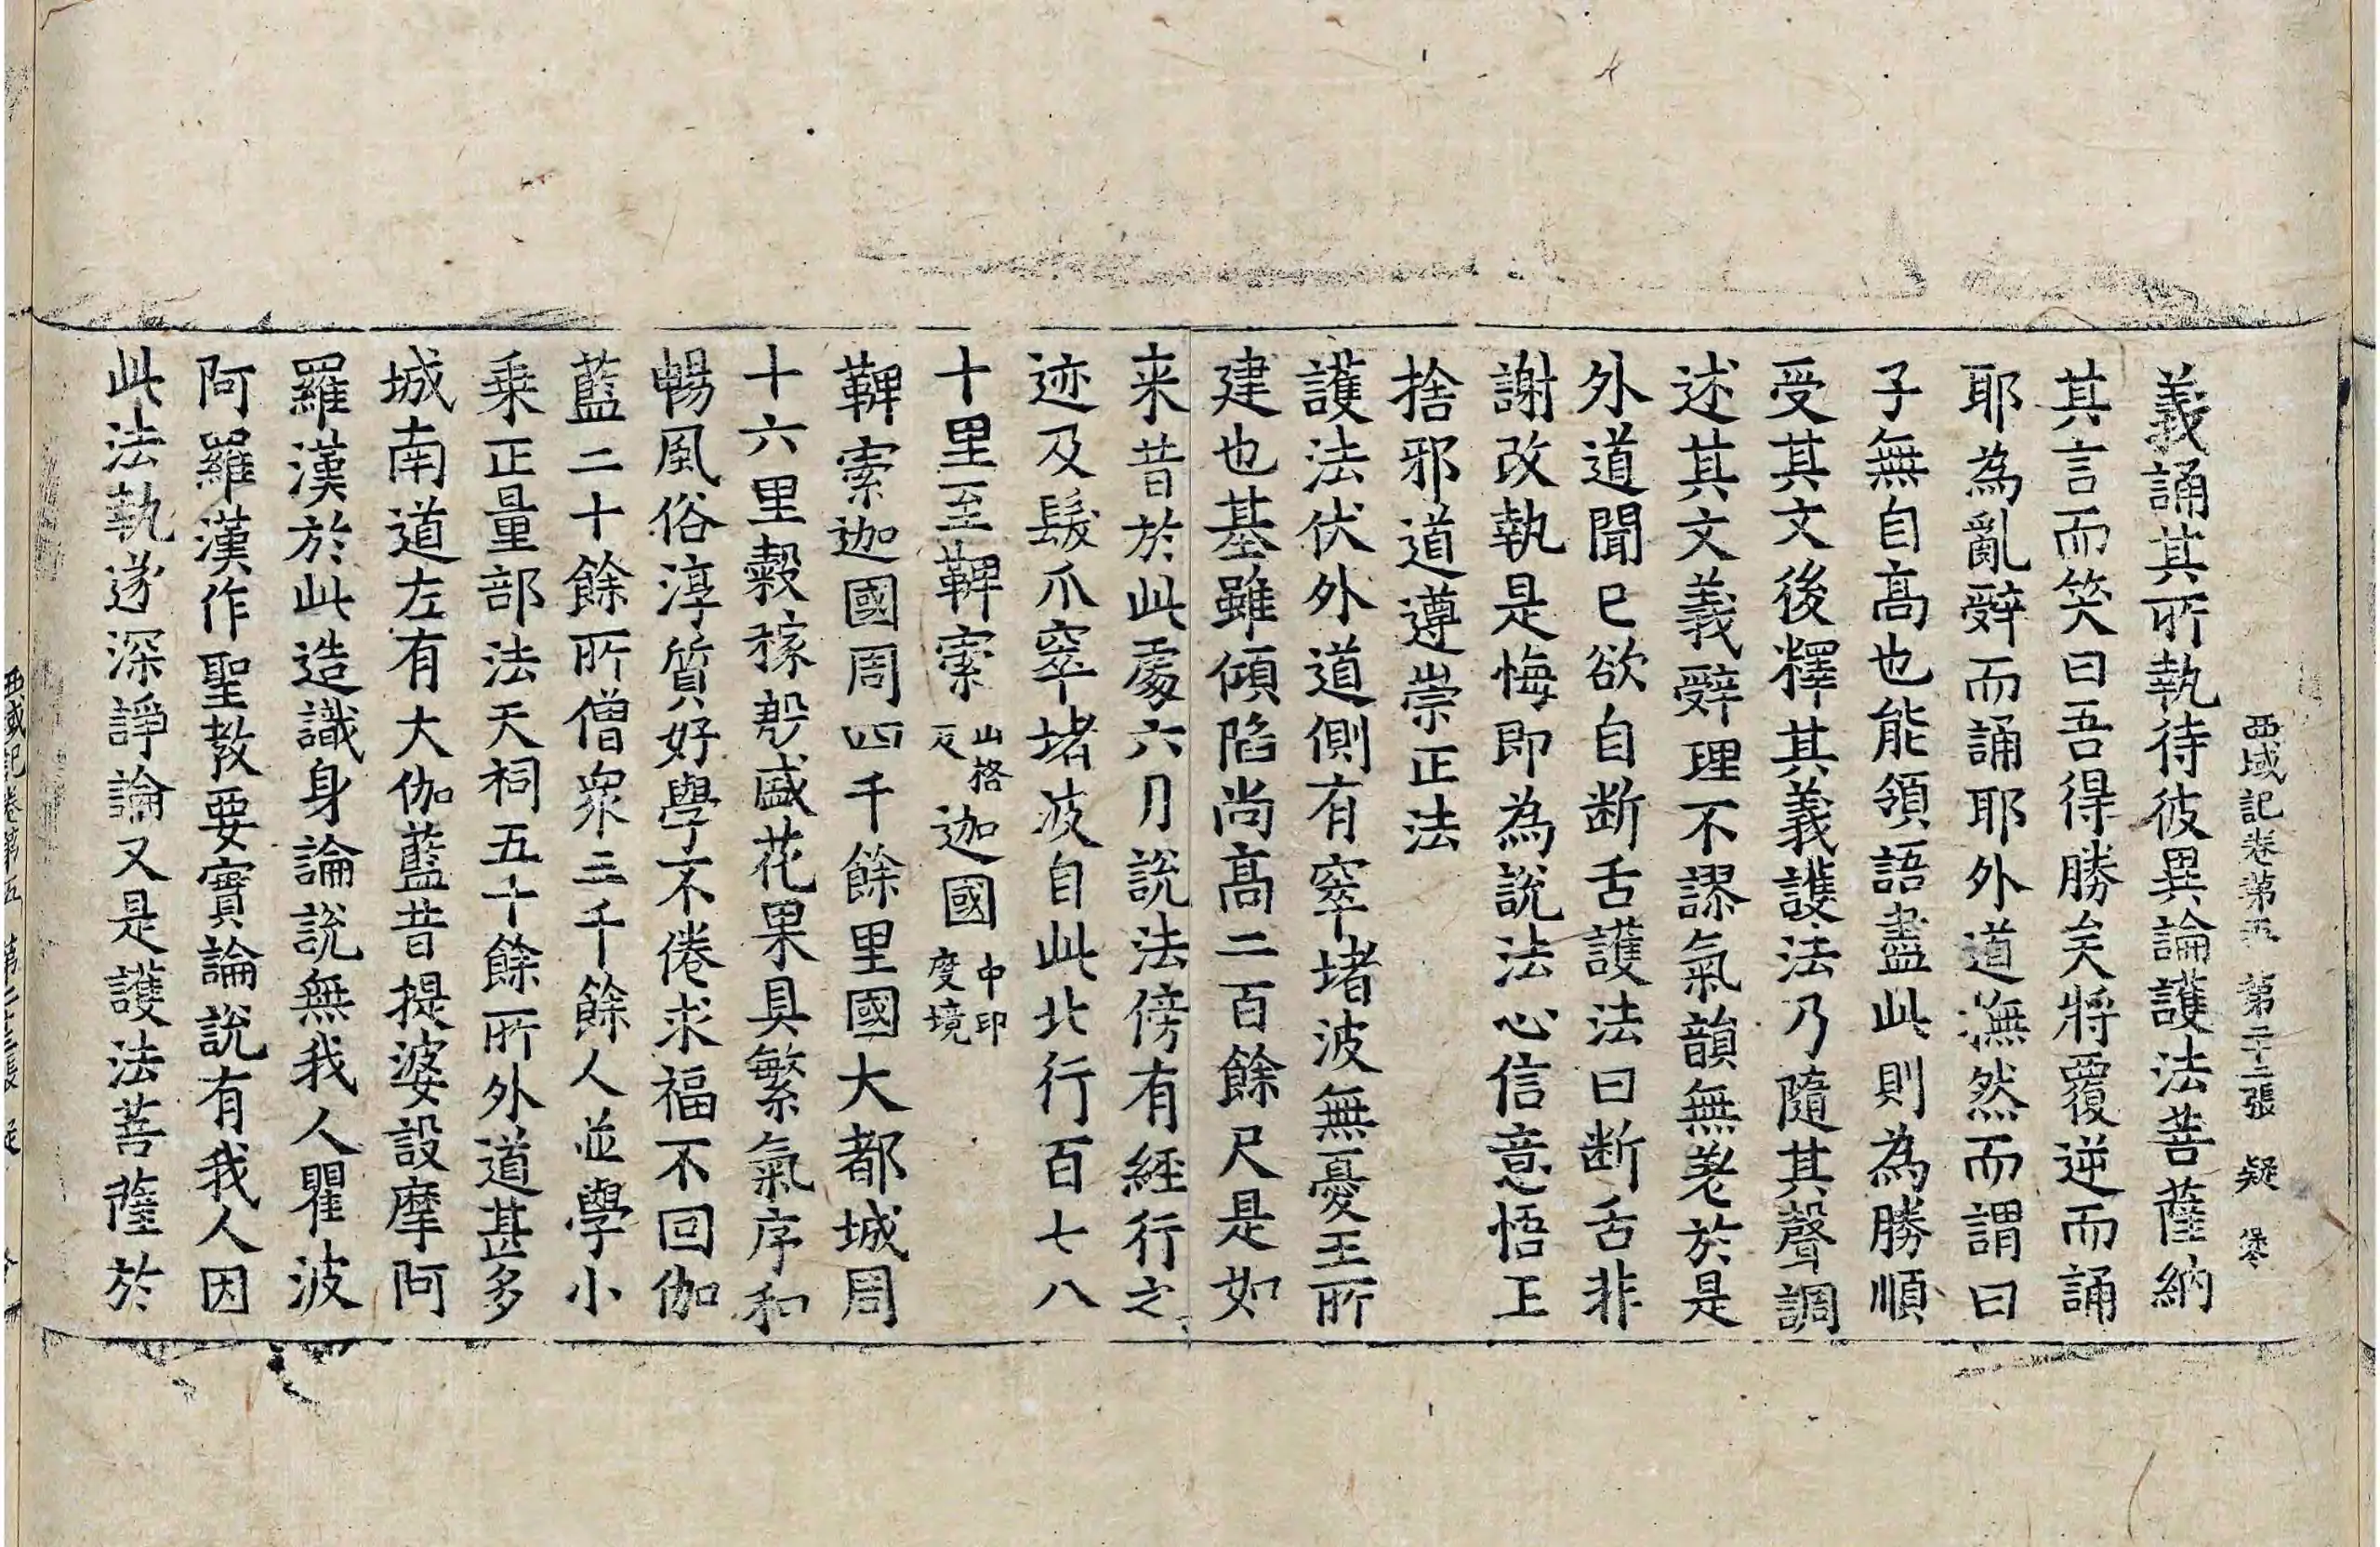 西域記卷第五 第二十二張 疑
義誦其所執待彼異論護法菩薩納
其言而笑曰吾得勝矣將覆逆而誦
耶為亂辤而誦耶外道憮然而謂曰
子無自高也能領語盡此則為勝順
受其文後釋其義護法乃隨其聲調
述其文義辤理不謬氣韻無差於是
外道聞已欲自断舌護法曰断舌非
謝改執是悔即為說法心信意悟王
捨邪道遵崇正法
護法伏外道側有窣堵波無憂王所
建也基雖傾陷尚高二百餘尺是如
来昔於此處六月說法傍有經行之
迹及髮爪窣堵波自此北行百七八
十里至鞞索山格反迦國中印度境
鞞索迦國周四千餘里國大都城周
十六里穀稼殷盛花果具繁氣序和
暢風俗淳質好學不倦求福不回伽
藍二十餘所僧衆三千餘人並學小
乗正量部法天祠五十餘所外道甚多
城南道左有大伽藍昔提婆設摩阿
羅漢於此造識身論說無我人瞿波
阿羅漢作聖教要實論說有我人因
此法執遂深諍論又是護法菩薩於